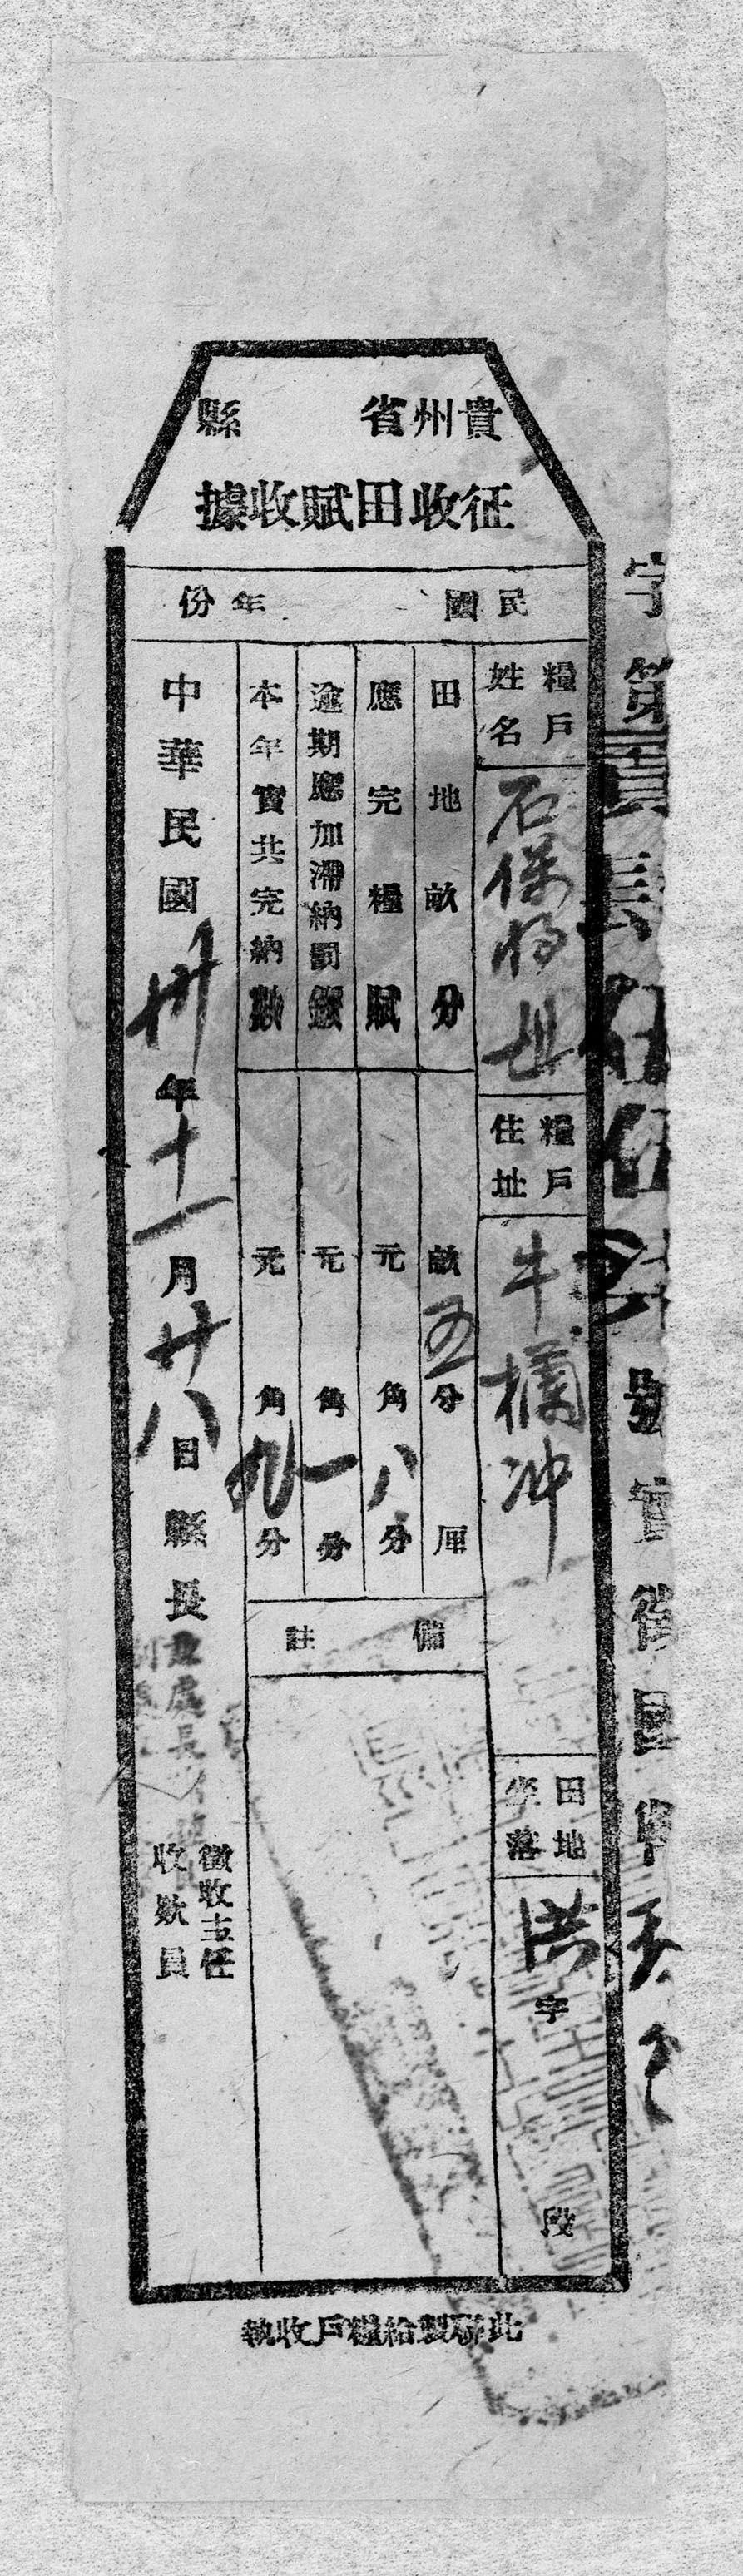 貴州省 縣
征收田賦收據
民國 年份
糧戶姓名
石保
糧戶住址
牛欄冲
田地坐落
洪字 段
田地畝分
畝五分 厘
應完糧賦
元 角八分
逾期應加滯納罰鍰
元 角一分
本年實共完納數
元 角九分
備註
中華民國卅年十一月廿八日縣長
徵收主任
收款員
字第
號
此聯製給糧戶收執